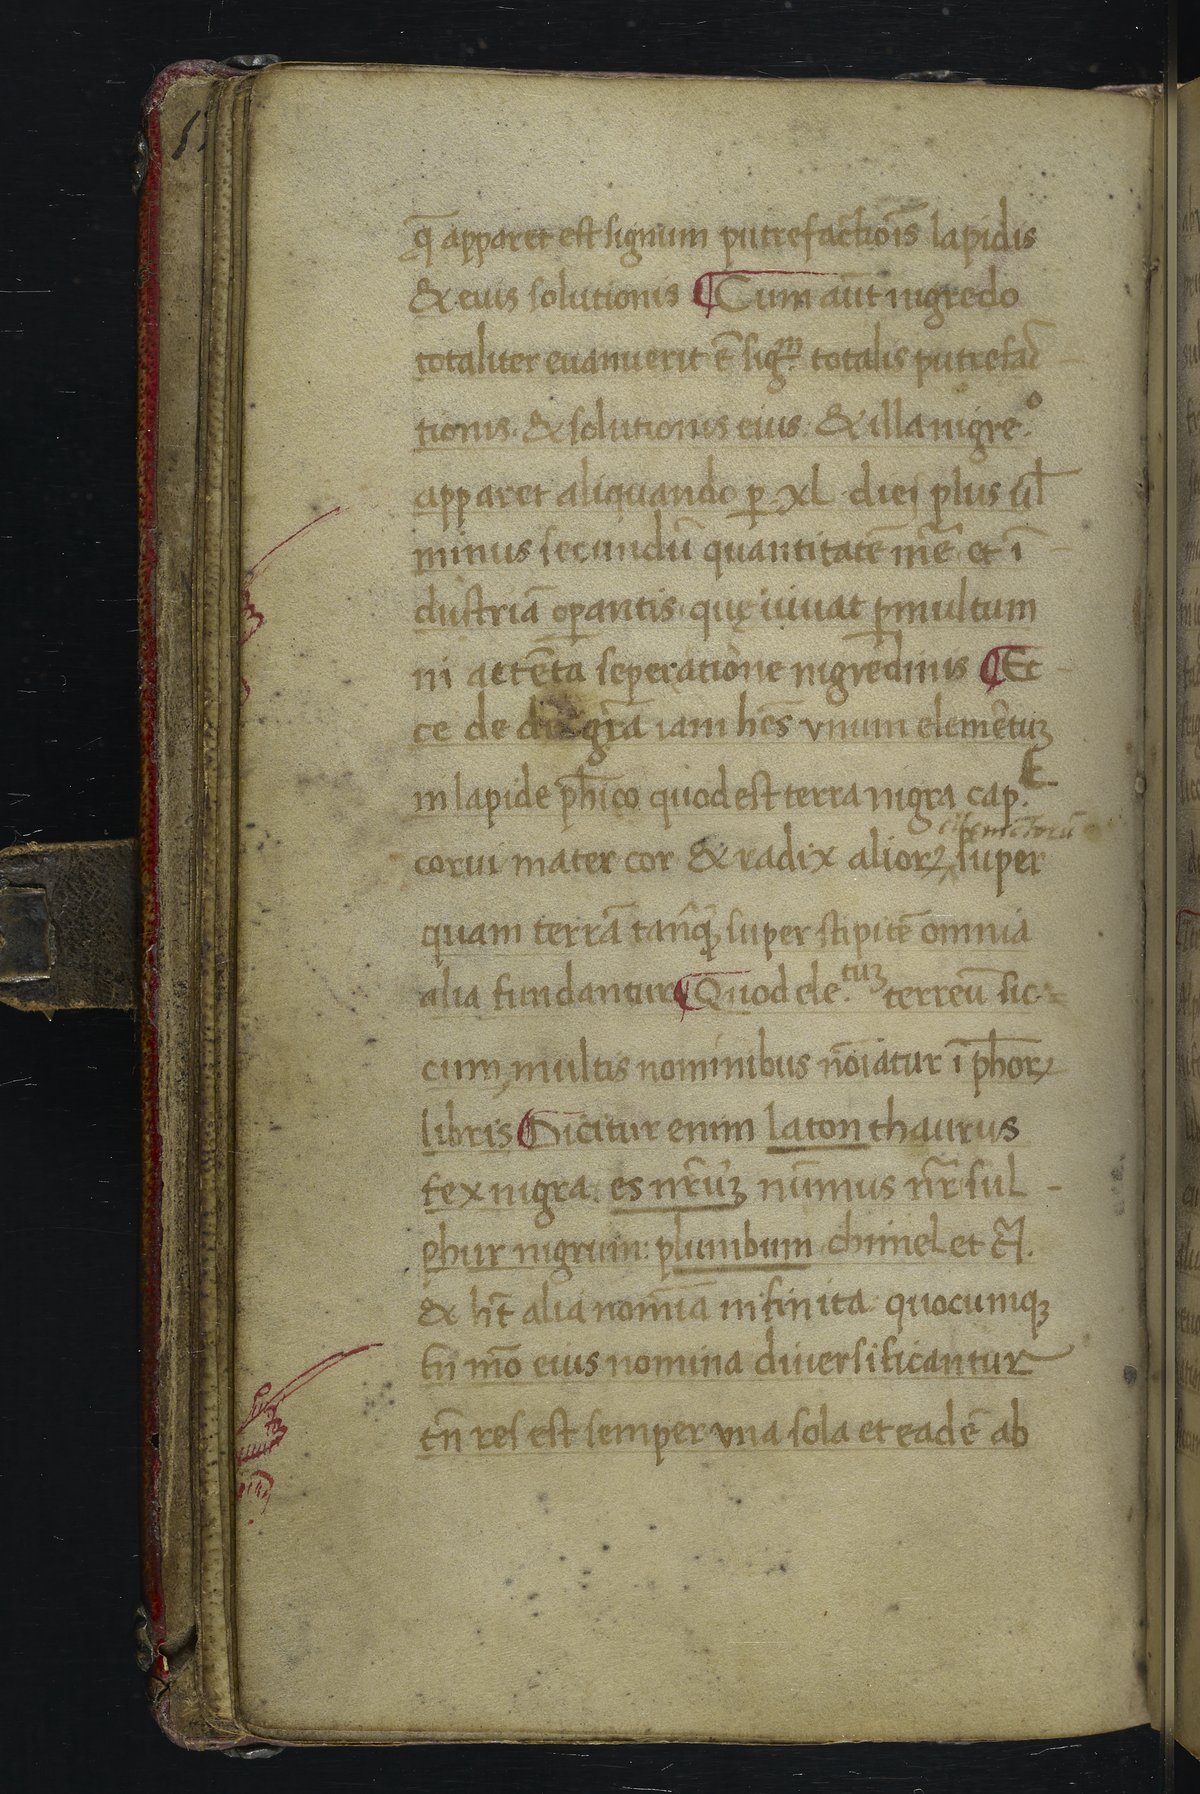 q̄ apparet est signum putrefactiōis lapidis
& eius solutionis ¶ Cum aūt nigredo
totaliter euanuerit ē sig.m totalis putrefac
tionis & solutionis eius: & illa nigre.o
apparet aliquando ꝑ xl dies plus ul̄
minus secundū quantitatē mr̄ē et ī
dustriā oꝑantis quę iuuat ꝑmultum
ni attēta seperatiōne nigredinis ¶ Ec
ce de dei gr̄a iam hēs vnum elemētuꝫ
in lapide ph̄ico quod est terra nigra cap.
corui mater cor & radix alioꝝ super
quam terrā tanq̄ super stipitē omnia
alia fundantur ¶ Quod ele.tuꝫ terreū sic
cum multis nominibus nōiatur ī ph̄oꝝ
libris ¶ Dicitur enim laton thaurus
fex nigra: es nr̄uꝫ nūmus nr̄ sul
phur nigrum: plumbum chimel et cꝶ.
& hn̄t alia nomīa infinita quocumqꝫ
tn̄ mō eius nomina diuersificantur
tn̄ res est semper vna sola et eadē ab